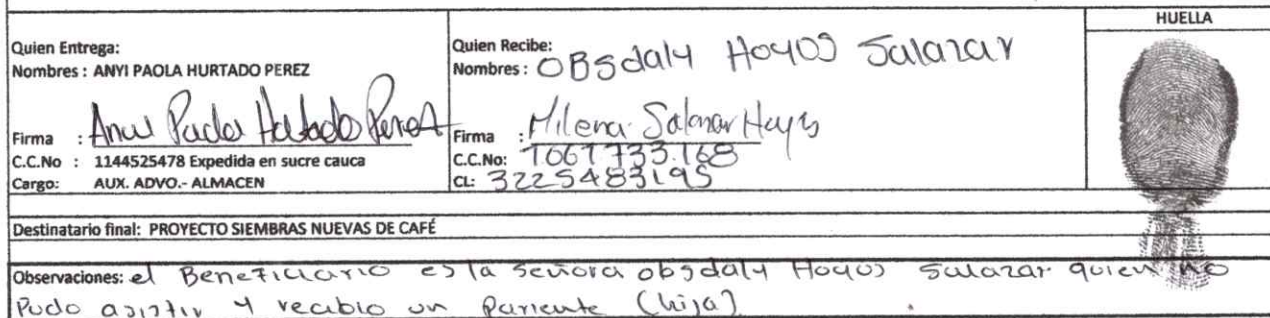 HUELLA
Quien Entrega:
Nombres : ANYI PAOLA HURTADO PEREZ
Firma : Anyi Paola Hurtado Perez
C.C.No : 1144525478 Expedida en sucre cauca
Cargo: AUX. ADVO.- ALMACEN
Quien Recibe:
Nombres : OBSdaly Hoyos Salazar
Firma : Milena Salazar Hoyos
C.C.No: 1061733.168
CL: 3225483195
Destinatario final: PROYECTO SIEMBRAS NUEVAS DE CAFÉ
Observaciones: el Beneficiario es la señora obsdaly Hoyos Salazar quien no
Pudo asistir y recibio un Pariente (hija)